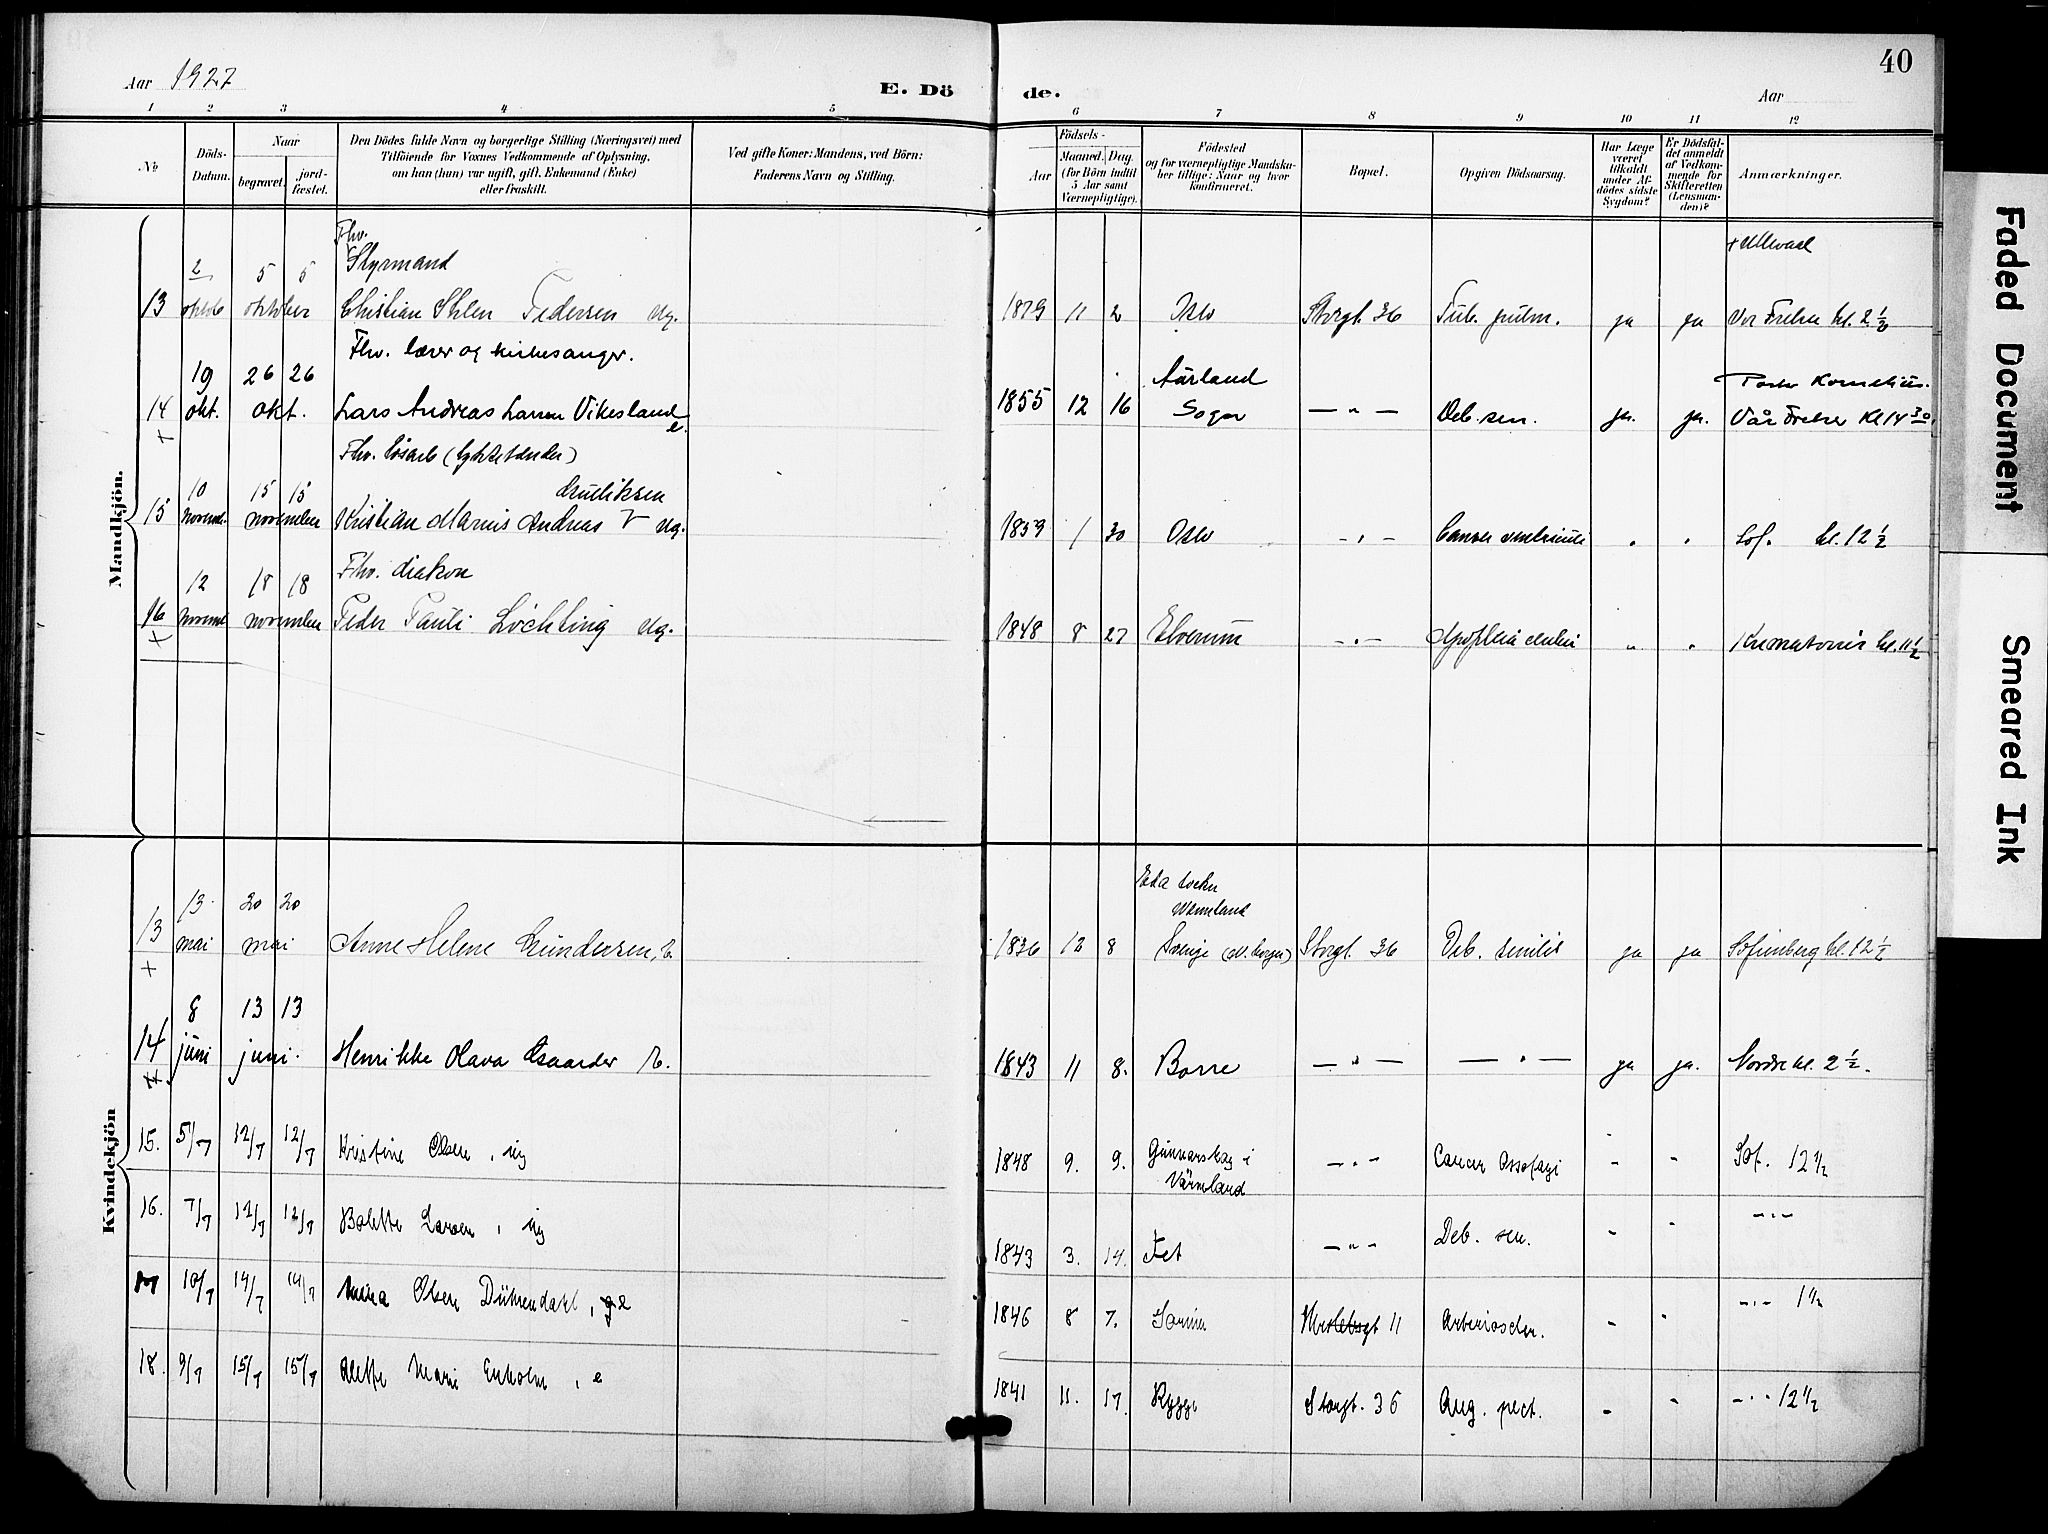 Aar 1927 E. Dö de. Aar 40
1 2 3 4 5 6 7 8 9 10 11 12
No
Döds-Datum.
Naar
begravet.
jordfæstet.
Den Dödes fulde Navn og borgerlige Stilling (Næringsvei) med
Tilföiende for Voxnes Vedkommende af Oplysning,
om han (hun) var ugift, gift, Enkemand (Enke)
eller fraskilt.
Ved gifte Koner: Mandens, ved Börn:
Faderens Navn og Stilling.
Födsels-
Aar
Maaned. Dag.
(for Börn indtil
5 Aar samt
Værnepligtige).
Födested
og for værnepligtige Mandska-
ber tillige: Naar og hvor
konfirmeret.
Bopæl.
Opgiven Dödsaarsag.
Har Læge
været
tilkaldt
under Af-
dödes sidste
Sygdom?
Er Dödsfal-
det anmeldt
af Vedkom-
mende for
Skifteretten
(Lensman-
den)?
Anmærkninger.
Mandkjön.
Fhv.
2 5 5 Styrmand + Ullevaal
13 oktober Christian Pedersen ug. 1879 11 2 Oslo Storgt. 36 Tub. pulm. ja ja Vor Frelser kl. 2 1/2
Fhv. lærer og kirkesanger.
19 26 26 Aurland
14 okt. okt. Lars Andreas Larsen Vikesland e. 1855 12 16 Sogn — " — Deb. sen. ja. ja. Vår Frelser Kl 14 30.
+
Fhv. løsarb (lyktetænder)
10 15 15
15 november Kristian Marius Andreas V ug. 1859 1 30 Oslo - " - Cancer ventriculi " " Sof. kl. 12 1/2
12 18 18 Fhv. diakon
16 november Peder Pauli Løchting ug. 1848 8 27 Elverum - " - " " Krematoriet kl. 11 1/2
+
Kvindekjön
13 20 20 Eda
13 mai mai Anne Helene Gundersen, E. 1836 12 8 Sverige Storgt. 36 Deb. senilis ja ja Sofienberg kl. 12 1/2
+
8 13 13
14 juni juni. Henrikke Olava E. 1843 11 8. Borre — " — — " — ja ja. Nordre kl. 2 1/2.
15. 5/7 12/7 12/7 Kristine Olsen, ug 1848 9. 9. Gunnarskog i Värmland - " - Cancer - - Sof. 12 1/2
16. 7/7 12/7 12/7 Bolette Larsen, ug 1843 3. 14. Fet - " - Deb. sen. - - - " -
17 10/7 14/7 14/7 Olsen 1846 8 7. 11 - - - " - 1 1/2
18. 9/7 15/7 15/7 Alette Marie , e 1841 11. 17. Rygge Storgt. 36 Ang. pect. - - - " - 12 1/2
Faded Document
Smeared Ink